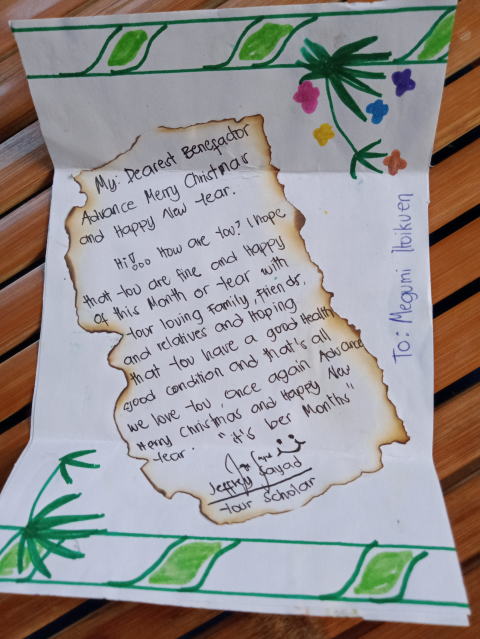 My: Dearest Benefactor
Advance Merry Christmas
and Happy New Year.
Hi!!ooo How are You? I hope
that You are fine and Happy
of this Month or Year with
Your loving Family, Friends,
and relatives and Hoping
that You have a good Health
good condition and that's all
we love You once again Advance
Merry Christmas and Happy New
Year. "it's ber Months"
Jeffrey Sayad
Your scholar
To: Megumi Itoikuen